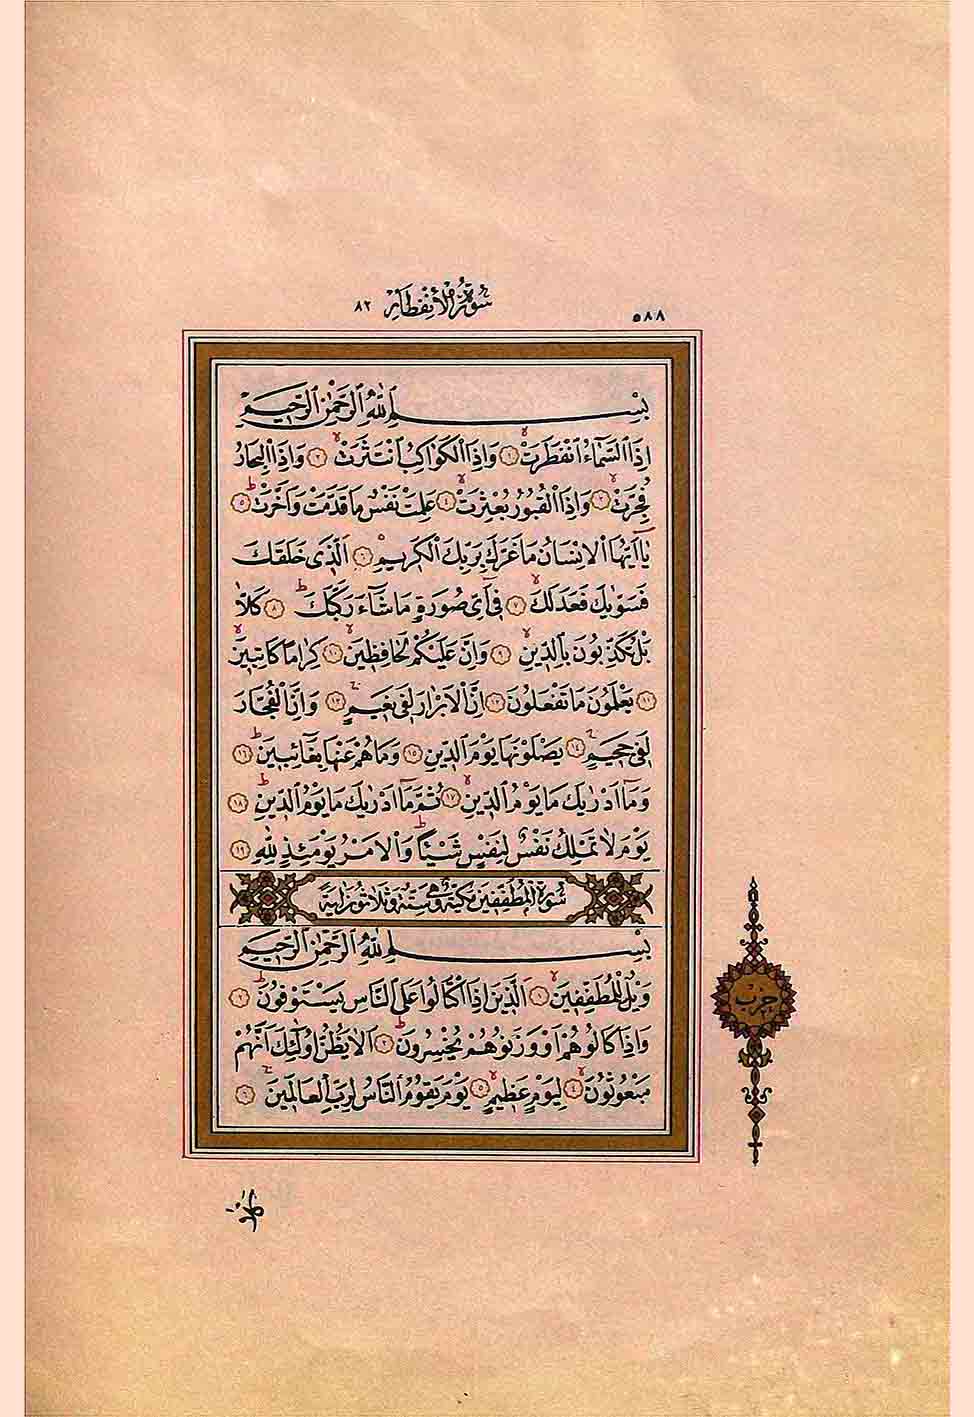 ٥٨٨
سُورَةُ الْاِنْفِطَارِ ٨٢
بِسْمِ اللّٰهِ الرَّحْمٰنِ الرَّحٖيمِ
اِذَا السَّمَٓاءُ انْفَطَرَتْ ﴿١﴾ وَاِذَا الْكَوَاكِبُ انْتَثَرَتْ ﴿٢﴾ وَاِذَا الْبِحَارُ
فُجِّرَتْ ﴿٣﴾ وَاِذَا الْقُبُورُ بُعْثِرَتْ ﴿٤﴾ عَلِمَتْ نَفْسٌ مَا قَدَّمَتْ وَاَخَّرَتْ ﴿٥﴾
يَٓا اَيُّهَا الْاِنْسَانُ مَا غَرَّكَ بِرَبِّكَ الْكَرٖيمِ ﴿٦﴾ اَلَّذٖى خَلَقَكَ
فَسَوّٰيكَ فَعَدَلَكَ ﴿٧﴾ فٖٓى اَىِّ صُورَةٍ مَا شَٓاءَ رَكَّبَكَ ﴿٨﴾ كَلَّا
بَلْ تُكَذِّبُونَ بِالدّٖينِ ﴿٩﴾ وَاِنَّ عَلَيْكُمْ لَحَافِظٖينَ ﴿١٠﴾ كِرَاماً كَاتِبٖينَ
﴿١١﴾ يَعْلَمُونَ مَا تَفْعَلُونَ ﴿١٢﴾ اِنَّ الْاَبْرَارَ لَفٖى نَعٖيمٍ ﴿١٣﴾ وَاِنَّ الْفُجَّارَ
لَفٖى جَحٖيمٍ ﴿١٤﴾ يَصْلَوْنَهَا يَوْمَ الدّٖينِ ﴿١٥﴾ وَمَا هُمْ عَنْهَا بِغَٓائِبٖينَ ﴿١٦﴾
وَمَٓا اَدْرٰيكَ مَا يَوْمُ الدّٖينِ ﴿١٧﴾ ثُمَّ مَٓا اَدْرٰيكَ مَا يَوْمُ الدّٖينِ ﴿١٨﴾
يَوْمَ لَا تَمْلِكُ نَفْسٌ لِنَفْسٍ شَيْـٔاً وَالْاَمْرُ يَوْمَئِذٍ لِلّٰهِ ﴿١٩﴾
سُورَةُ الْمُطَفِّفٖينَ مَكِّيَّةٌ وَهِىَ سِتَّةٌ وَثَلَاثُونَ اٰيَةً
بِسْمِ اللّٰهِ الرَّحْمٰنِ الرَّحٖيمِ
وَيْلٌ لِلْمُطَفِّفٖينَ ﴿١﴾ اَلَّذٖينَ اِذَا اكْتَالُوا عَلَى النَّاسِ يَسْتَوْفُونَ ﴿٢﴾
حزب
وَاِذَا كَالُوهُمْ اَوْ وَزَنُوهُمْ يُخْسِرُونَ ﴿٣﴾ اَلَا يَظُنُّ اُولٰٓئِكَ اَنَّهُمْ
مَبْعُوثُونَ ﴿٤﴾ لِيَوْمٍ عَظٖيمٍ ﴿٥﴾ يَوْمَ يَقُومُ النَّاسُ لِرَبِّ الْعَالَمٖينَ ﴿٦﴾